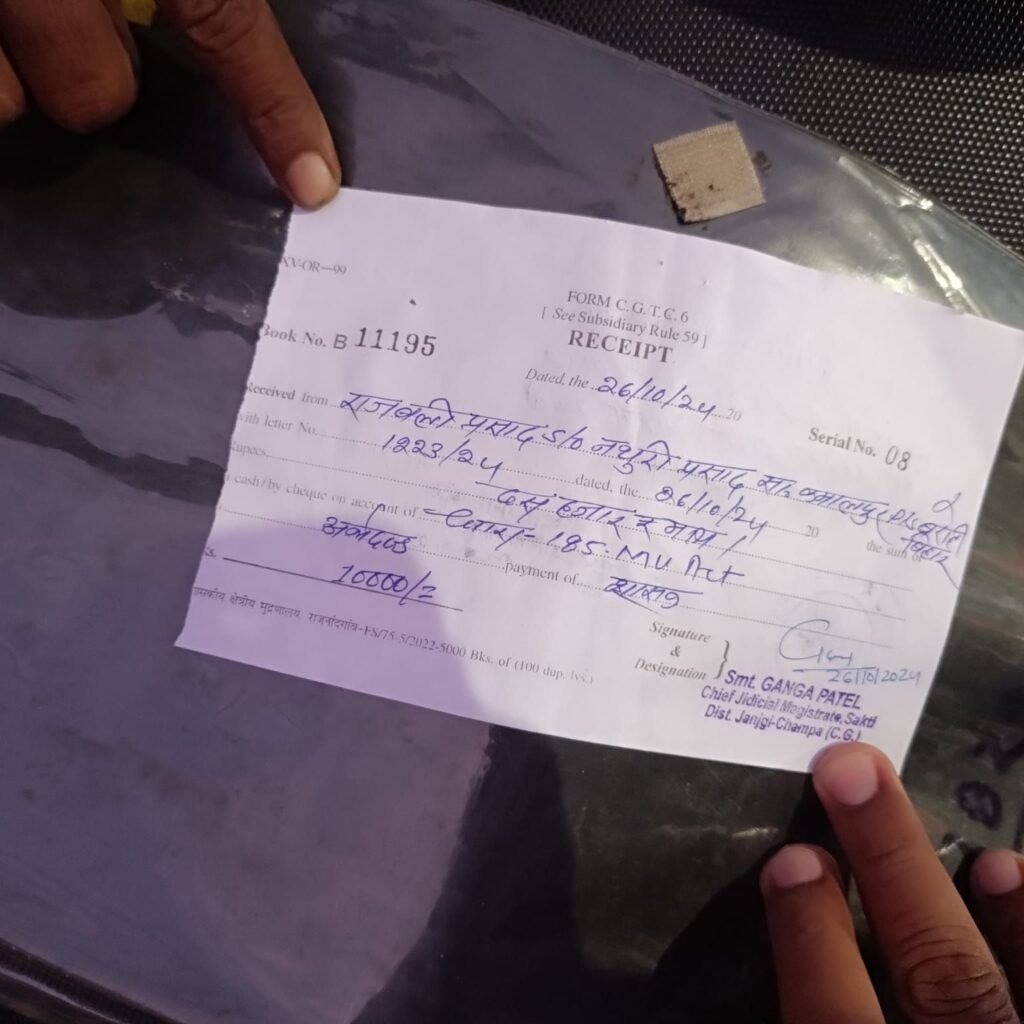 XV-OR—99
FORM C. G. T. C. 6
[ See Subsidiary Rule 59 ]
RECEIPT
Book No. B 11195
Dated, the 26/10/24 20
Serial No. 08
Received from राजबली प्रसाद S/o नथुरी प्रसाद सा.
with letter No. 1223/24 dated, the 26/10/24 20 the sum of
Rupees दस हजार रु मात्र /
cash/by cheque on account of धारा - 185. M.V Act
अर्थदण्ड payment of
Rs. 10000/=
क्षेत्रीय मुद्रणालय, राजनांदगांव–FS/75-5/2022-5000 Bks. of (100 dup. lvs.)
Signature
&
Designation
26/10/2024
Smt. GANGA PATEL
Chief Jidicial Megistrate, Sakti
Dist. Janjgi-Champa (C.G.)